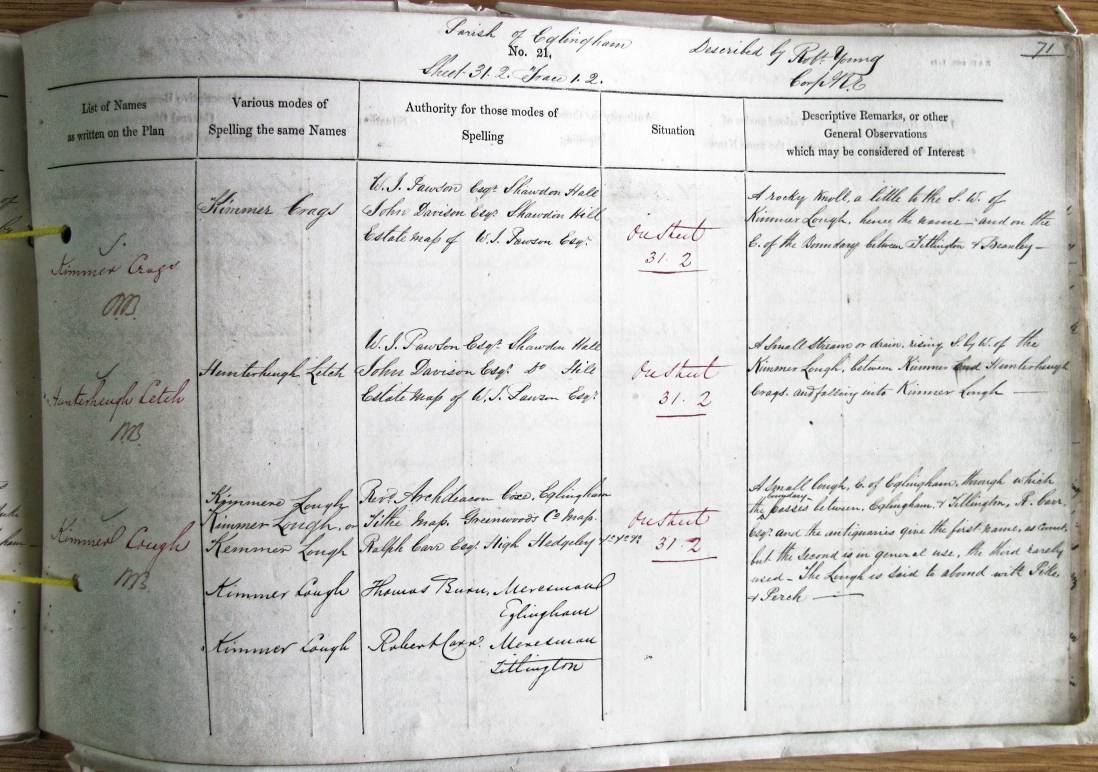 Parish of Eglingham
No. 21,
Sheet 31.2. Trace 1.2.
Described by Robt. Young
Corpl. R.E
71
List of Names
as written on the Plan
Various modes of
Spelling the same Names
Authority for those modes of
Spelling
Situation
Descriptive Remarks, or other
General Observations
which may be considered of Interest
Kimmer Crags
Kimmer Crags
W. J. Pawson Esqr. Shawdon Hall
John Davison Esqr. Shawdon Hill
Estate Map of W. J. Pawson Esqr.
On Sheet
31. 2
A rocky knoll, a little to the S. W. of
Kimmer Lough, hence the name — and on the
E. of the Boundary between Titlington & Beanley —
Hunterheugh Letch
Hunterheugh Letch
W. J. Pawson Esqr. Shawdon Hall
John Davison Esqr. Do Hill
Estate Map of W. J. Pawson Esqr.
On Sheet
31. 2
A small Stream or drain, rising S. by W. of the
Kimmer Lough, between Kimmer and Hunterheugh
Crags. and falling into Kimmer Lough —
Kimmer Lough
Kimmere Lough
Kimmer Lough, or
Kemmer Lough
Kimmer Lough
Kimmer Lough
Revd. Archdeacon Coxe, Eglingham
Tithe Map. Greenwoods Co. Map.
Ralph Carr Esqr. High Hedgeley
Thomas Burn, Meresman
Eglingham
Robert Carr. Meresman
Titlington
On Sheet
31. 2
A small lough, E. of Eglingham, through which
the boundary passes between, Eglingham, & Titlington, R. Carr
Esqr. and the antiquaries give the first name, as correct,
but the second is in general use, the third rarely
used — The Lough is said to abound with Pike
& Perch —